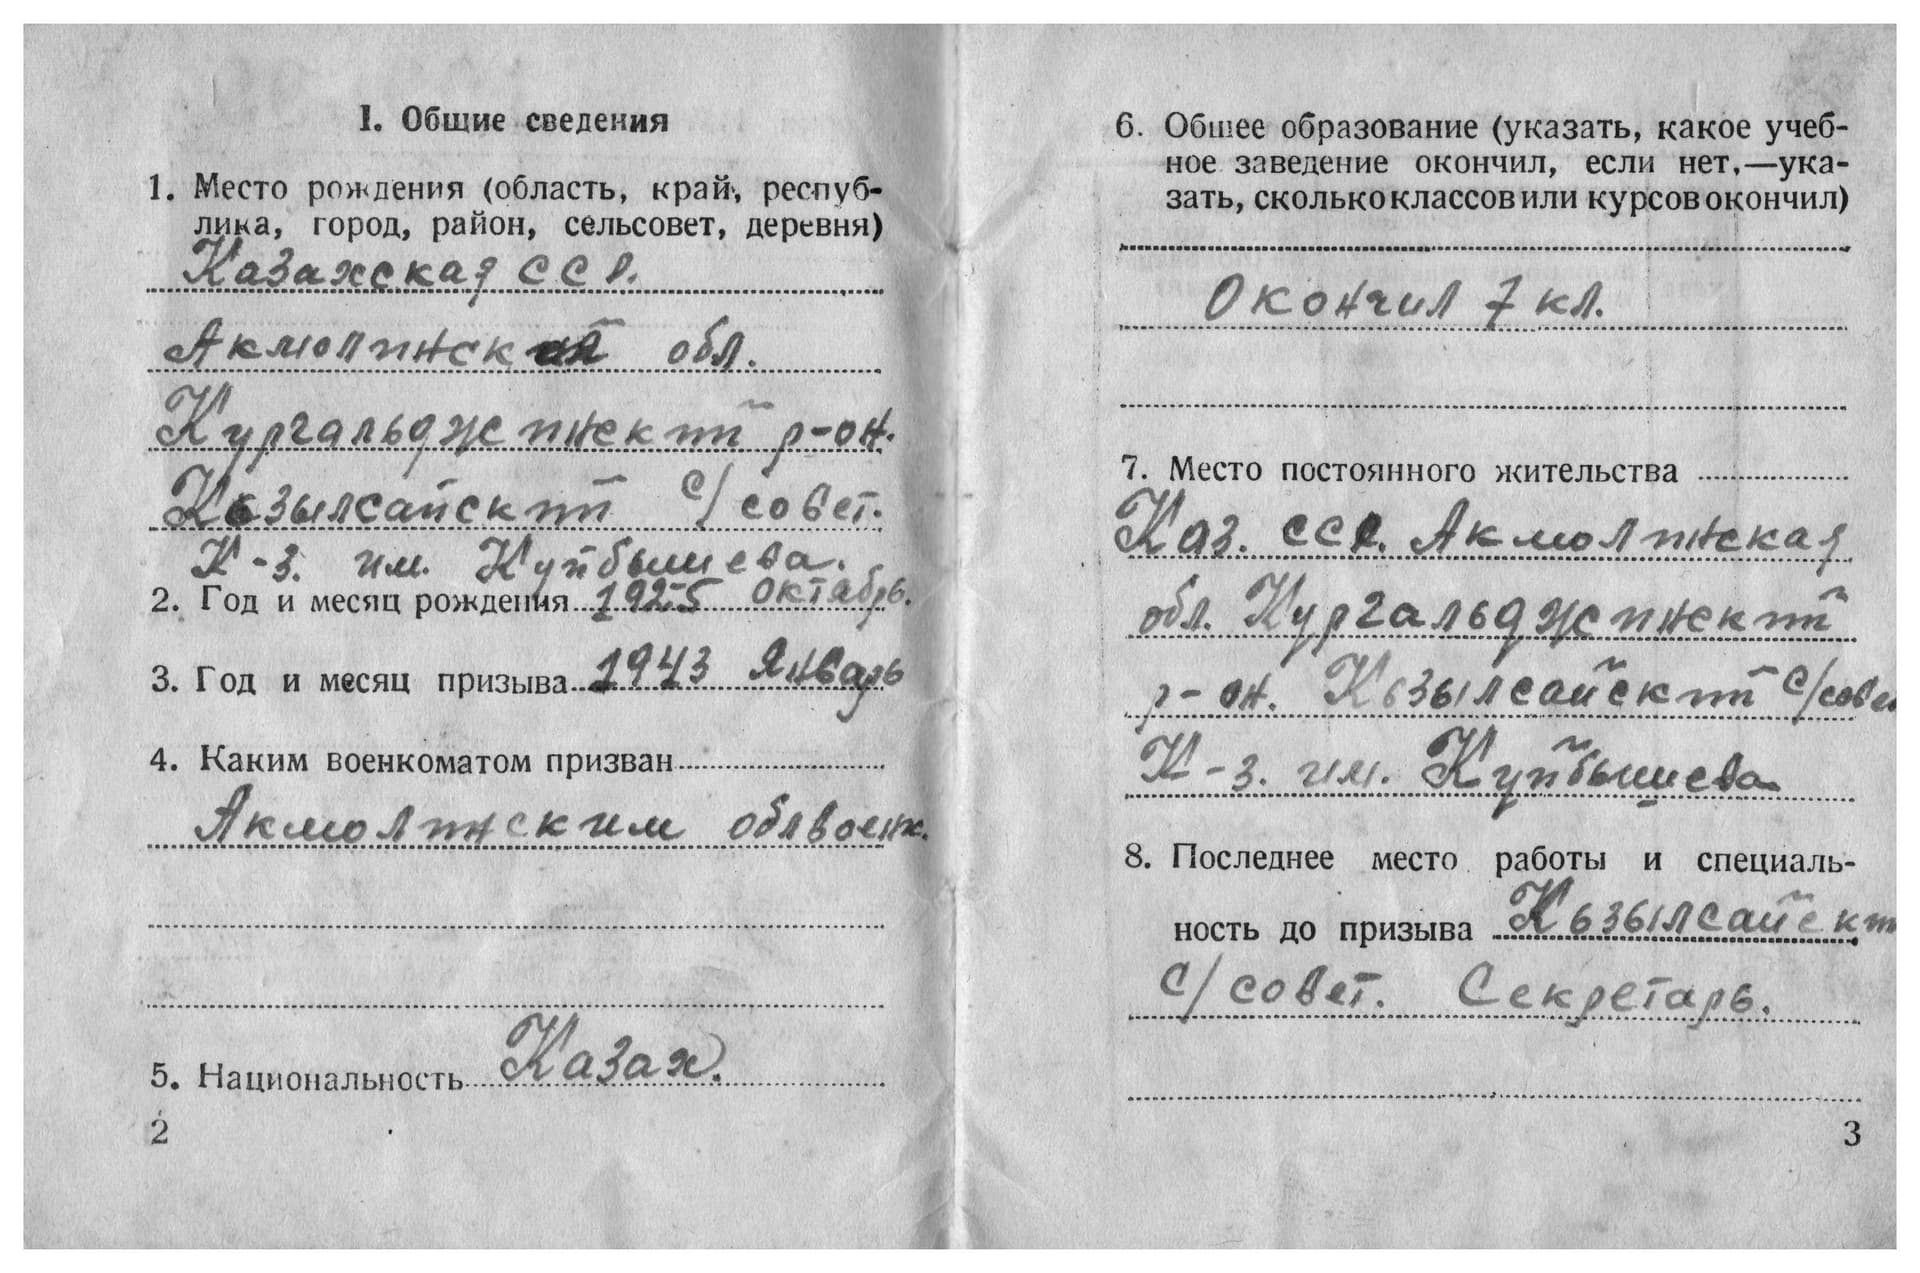 I. Общие сведения
1. Место рождения (область, край, респуб-
лика, город, район, сельсовет, деревня)
Казахская ССР.
Акмолинский обл.
Кургальджинский р-он.
Кызылсайский с/совет.
К-з. им. Куйбышева.
2. Год и месяц рождения 1925 октябрь.
3. Год и месяц призыва 1943 Январь
4. Каким военкоматом призван
Акмолинским облвоенк.
5. Национальность Казах.
2
6. Общее образование (указать, какое учеб-
ное заведение окончил, если нет,—ука-
зать, сколько классов или курсов окончил)
Окончил 7 кл.
7. Место постоянного жительства
Каз. ССР. Акмолинская
обл. Кургальджинский
р-он. Кызылсайский с/совет
К-з. им. Куйбышева
8. Последнее место работы и специаль-
ность до призыва Кызылсайский
с/совет. Секретарь.
3